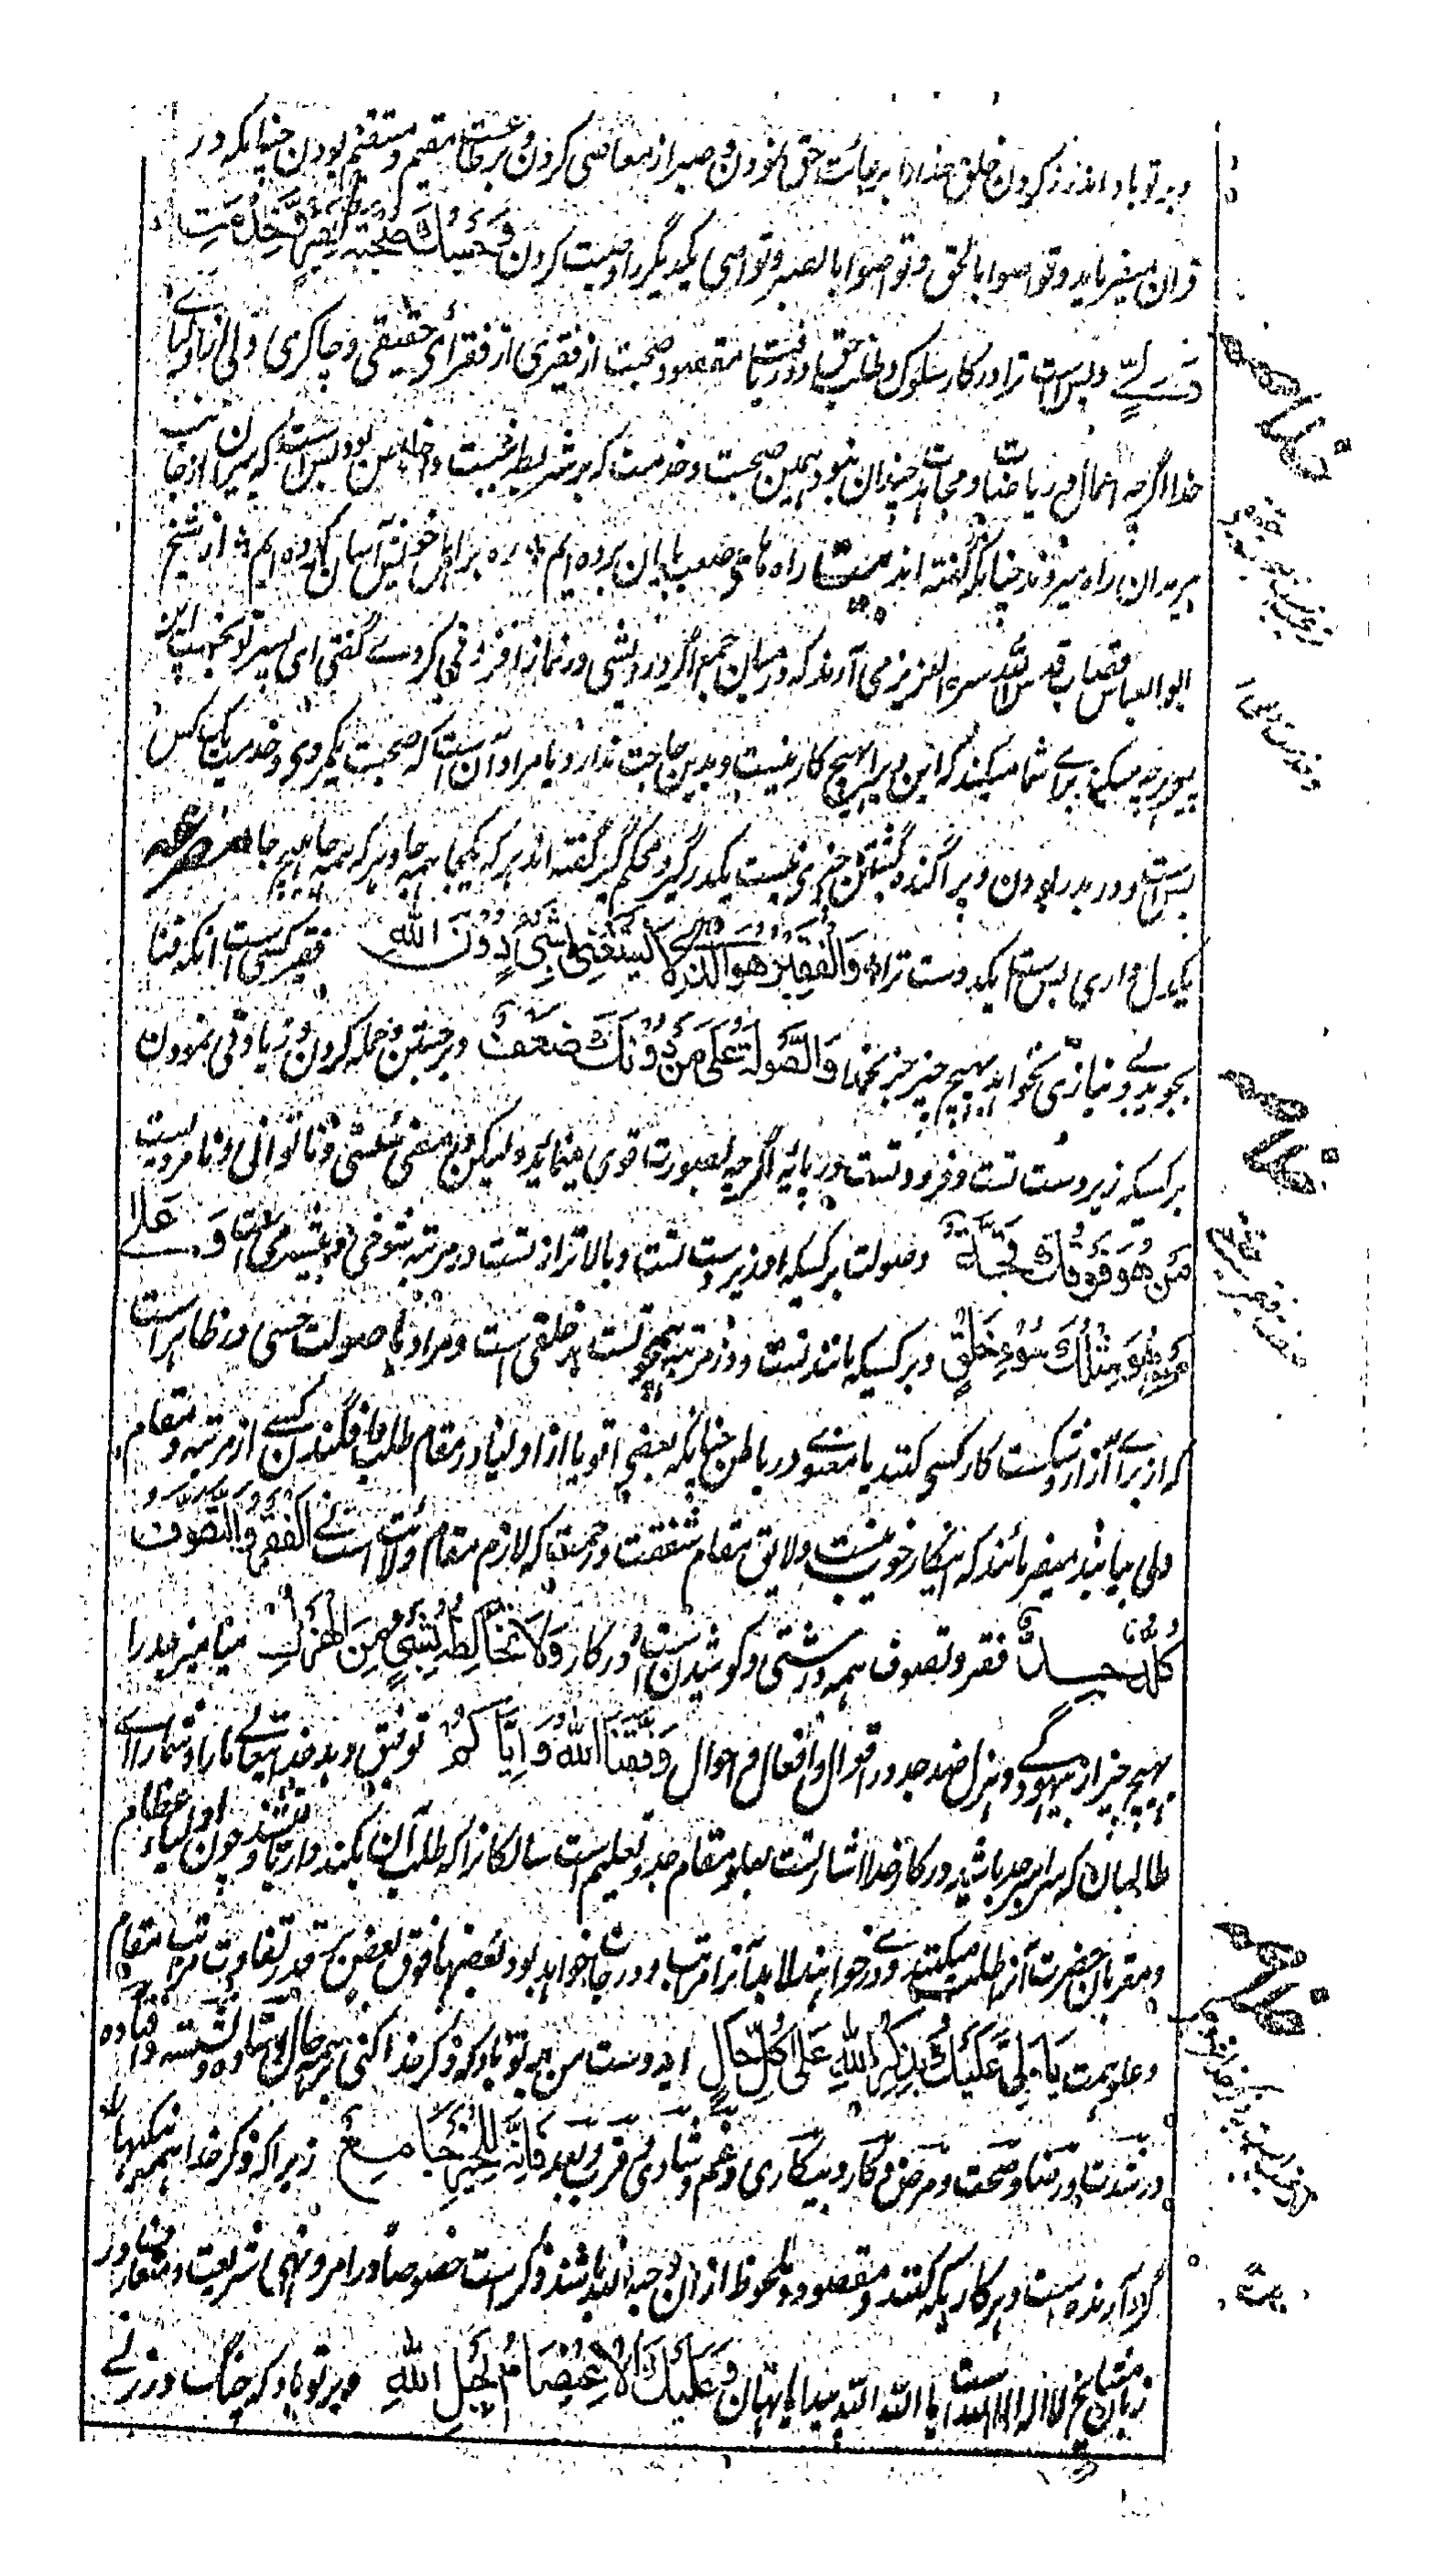 و بر تو باد اندرز کردن خلق خدا را برعایت حق نمودن و صبر از معاصی کردن و بر طاعت مقیم و مستقیم بودن چنانکه در
قران میفرماید و تواصوا بالحق و تواصوا بالصبر و تواصی یکدیگر را وصیت کردن وَحَسْبُكَ صُحْبَةُ فَقِيْرٍ وَخِدْمَتِ
وَلِيٍّ و بس است ترا در کار سلوک و طلب حق و دریافت مقصود صحبت از فقیری از فقرای حقیقی و چاکری ولی از اولیای
خدا اگرچه اعمال و ریاضات و مجاهدات چندان نبود همین صحبت و خدمت که بر شریطه نیت و اخلاص بود بس است که پیران از جانب
مریدان راه میروند چنانکه گفته اند بیت راه های صعب پایان برده ایم ؛ ره برای اهل خویش آسان کرده ایم ؛ از شیخ
ابوالعباس قصاب قدس الله سره العزیز می آرند که در میان جمع اگر درویشی در نماز افزونی کردے گفتی ای پسر تو بخسپ این
پیر هرچه میکند برای شما میکند که این پیر را هیچ کار نیست و بدین حاجت ندارد و نامراد آنست که صحبت یکمردی و خدمت یک کس
بس است و در بدر بودن و پراگنده گشتن چیزی نیست یکدر گیر و محکم گیر گفته اند هر که یکجا همه جا و هر که همه جا هیچ جا مصرعه
یکدل داری بس است یکدوست ترا وَالْفَقِيْرُ هُوَ الَّذِيْ لَا يَسْتَغْنِيْ بِشَيْءٍ دُوْنَ اللهِ فقیر کسی است انکه غنا
بجوید و بی نیازی نخواهد بهیچ چیز جز بخدا وَالصَّوْلَةُ عَلٰى مَنْ دُوْنَكَ ضَعْفٌ و برجستن و حمله کردن و زیادتی نمودن
بر کسیکه زیر دست تست و فرود تست در پایه اگرچه بصورت قوی مینماید ولیکن در معنی سستی و ناتوانی و نامردیست
مَنْ هُوَ فَوْقَكَ وَقَاحَةٌ و صولت بر کسیکه او زبردست تست و بالاتر از تست در مرتبه شوخی و بیشرمی است وَعَلٰى
مَنْ هُوَ مِثْلُكَ سُوْءُ خُلُقٍ و بر کسیکه مانند تست و در مرتبه همچو تست بدخلقی است و مراد یا صولت حسی در ظاهر است
که از برای آزار و شکست کار کسی کنند یا معنوی در باطن چنانکه بعضی اقویا از اولیا در مقام طلب افگندن کسے از مرتبه و مقام
ولی میباشد میفرمائند که اینکار خوب نیست ولایق مقام شفقت و رحمت که لازم مقام ولایت است نے اَلْفَقْرُ وَالتَّصَوُّفُ
كُلُّهُ جِدٌّ فقر و تصوف همه درشتی و کوشیدن است در کار وَلَا تُخَالِطْهُ بِشَيْءٍ مِّنَ الْهَزْلِ میامیز جد را
بهیچ چیز از بیهودگے و هزل ضد جد در اقوال و افعال و احوال وَفَّقَنَا اللهُ وَاِيَّاكُمْ توفیق دهد خدا تعالی ما را و شما را اے
طالبان که سراسر جد باشید در کار خدا اشارتست بعلو مقام جد و تعلیم است سالکانرا که طلب آن بکنند و دریابند و چون اولیاء عظام
و مقربان حضرت آنرا طلب میکنند و در میخواهند لابد آنرا مراتب و درجات خواهد بود بعضیها فوق بعض بر قدر تفاوت مراتب مقام
و علو همت يَا وَلِيُّ عَلَيْكَ بِذِكْرِ اللهِ عَلٰى كُلِّ حَالٍ ایدوست من بر تو باد که ذکر خدا کنی بهر حال ایستاده و نشسته و افتاده
در شدت و رخا و صحت و مرض و کار و بیکاری و غم و شادی و قرب و بعد فَاِنَّهُ لِلْخَيْرِ جَامِعٌ زیرا که ذکر خدا همه نیکیها را
گرد آرنده است و هر کاریکه کنند و مقصود و ملحوظ از ان وجه الله باشد ذکر است خصوصاً در امر و نهی شریعت و متعارف در
زبان مشایخ لا اله الا الله است یا الله الله پیدا یا پنهان وَعَلَيْكَ الْاِعْتِصَامُ بِحَبْلِ اللهِ و بر تو باد که چنگ در زنے